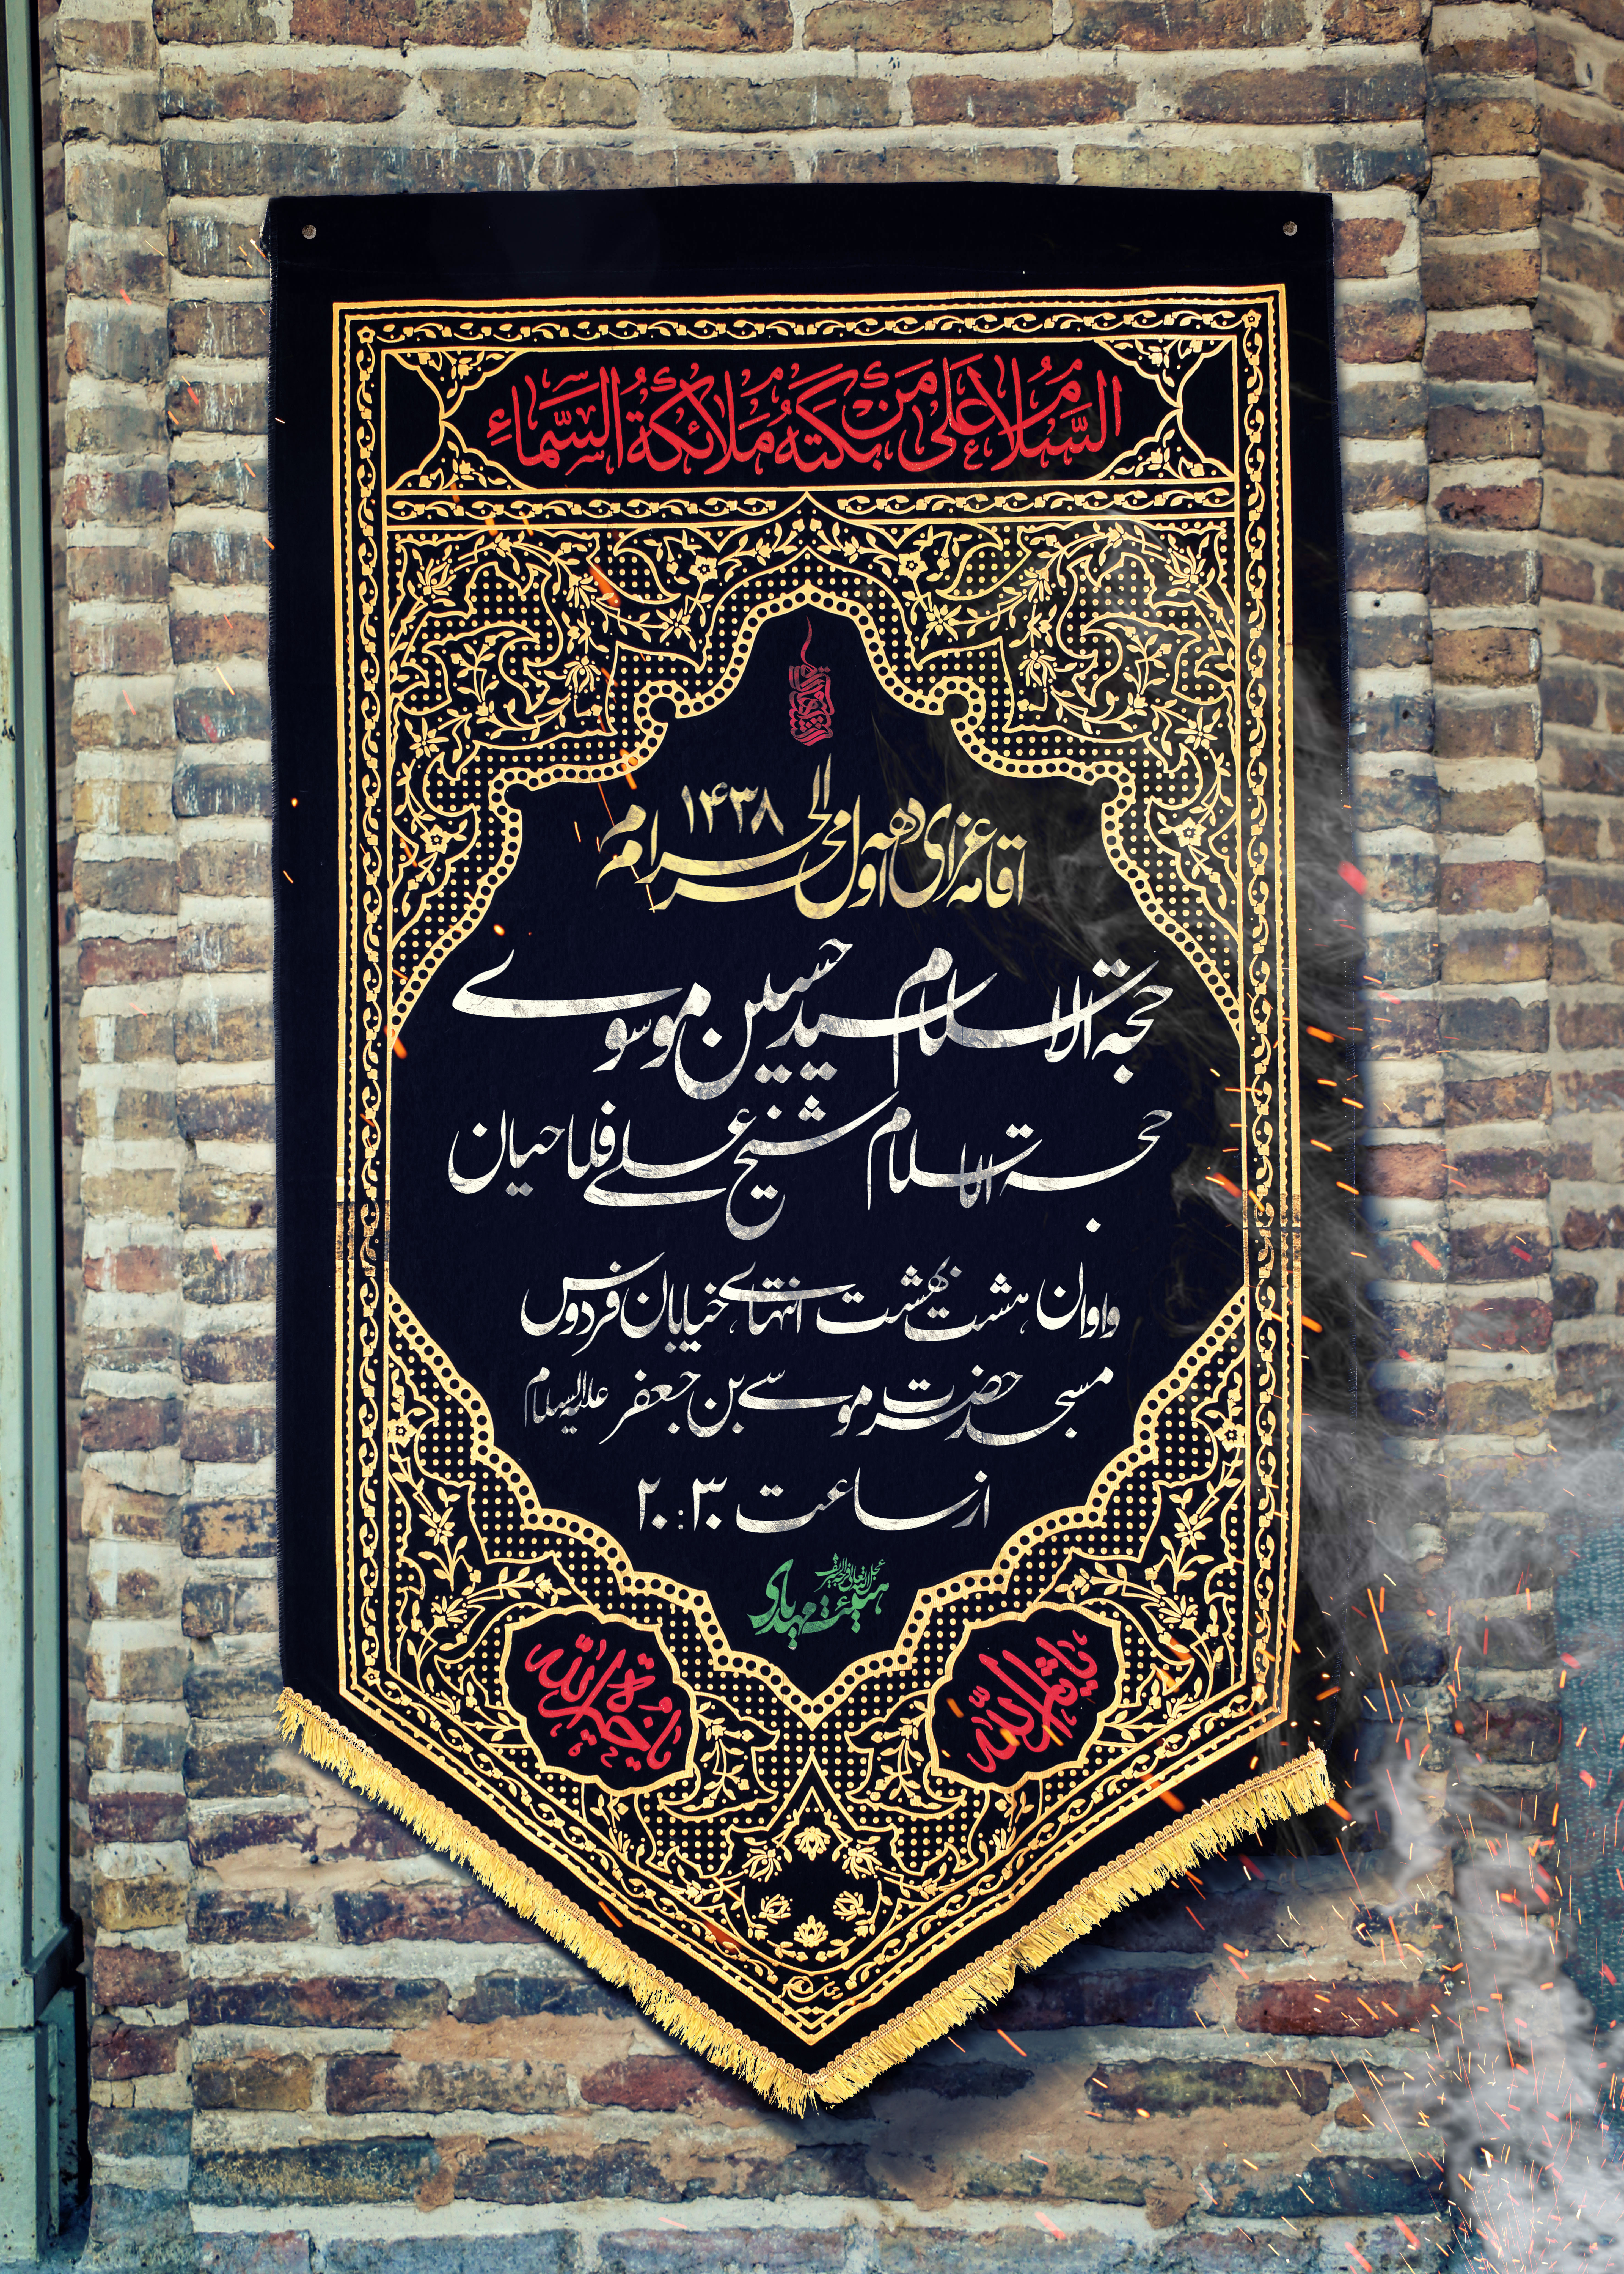 السَّلامُ عَلی مَنْ بَکَتْهُ مَلائِکَةُ السَّماءِ
اقامه عزای دهه اول محرم الحرام ۱۴۳۸
حجة الاسلام سید حسین موسوی
حجة الاسلام شیخ علی فلاحیان
واوان هشت بهشت انتهای خیابان فردوس
مسجد حضرت موسی بن جعفر علیه السلام
از ساعت ۲۰:۳۰
هیئت مهدی عجل الله تعالی فرجه الشریف
یا ثارالله